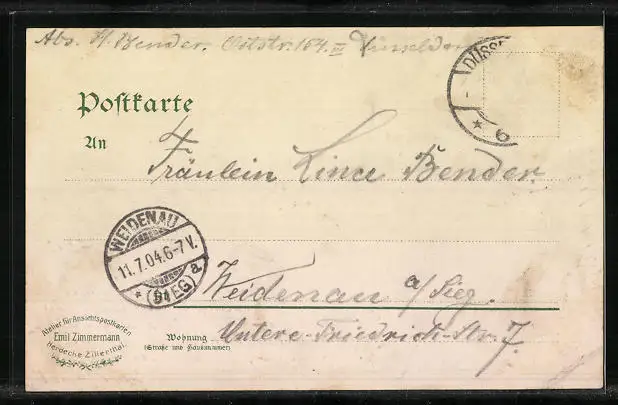 Abs. H. Bender. Oststr. 164. III Düsseldorf
DÜSS
* 6
Postkarte
An
Fräulein Lina Bender.
WEIDENAU
11.7.04.6-7V.
* (SIEG) a
Weidenau a/Sieg.
Wohnung
(Straße und Hausnummer)
Untere-Friedrich-Str. 7.
Atelier für Ansichtspostkarten
Emil Zimmermann
Herdecke Zillerthal